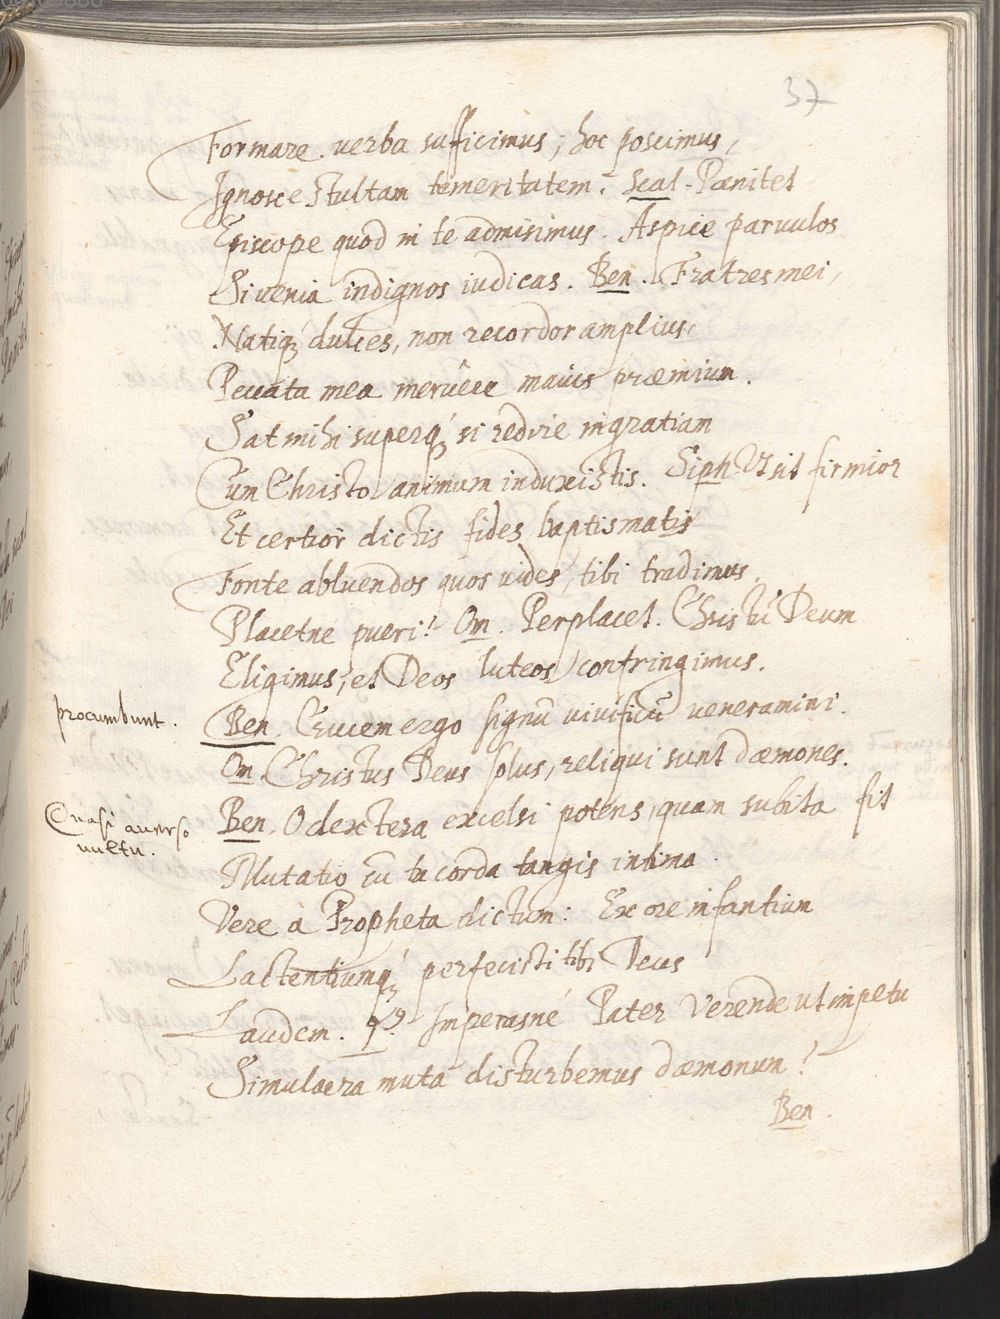 37
Formare verba sufficimus; hoc poscimus,
Ignosce stultam temeritatem. Scal. Pænitet
Episcope quod in te admisimus. Aspice paruulos
Si venia indignos iudicas. Ben. Fratres mei,
Natiq́; dulces, non recordor amplius,
Peccata mea meruêre maius præmium.
Sat mihi superq́; si redire in gratiam
Cum Christo animum induxistis. Siph Vt sit firmior
Et certior dictis fides, baptismatis
Fonte abluendos quos uides, tibi tradimus,
Placetne pueri? Om. Perplacet. Christū Deum
Eligimus, et Deos luteos confringimus.
procumbunt.
Ben. Crucem ergo signū vivificū veneramini.
Om. Christus Deus solus, reliqui sunt dæmones.
Quasi auerso
uultu.
Ben. O dextera excelsi potens, quam subita fit
Mutatio cū tu corda tangis intima.
Vere à Propheta dictum: Ex ore infantium
Lactentiumq́; perfecisti tibi Deus
Laudem. Imperasné Pater Verende ut impetu
Simulacra muta disturbemus dæmonum?
Ben.